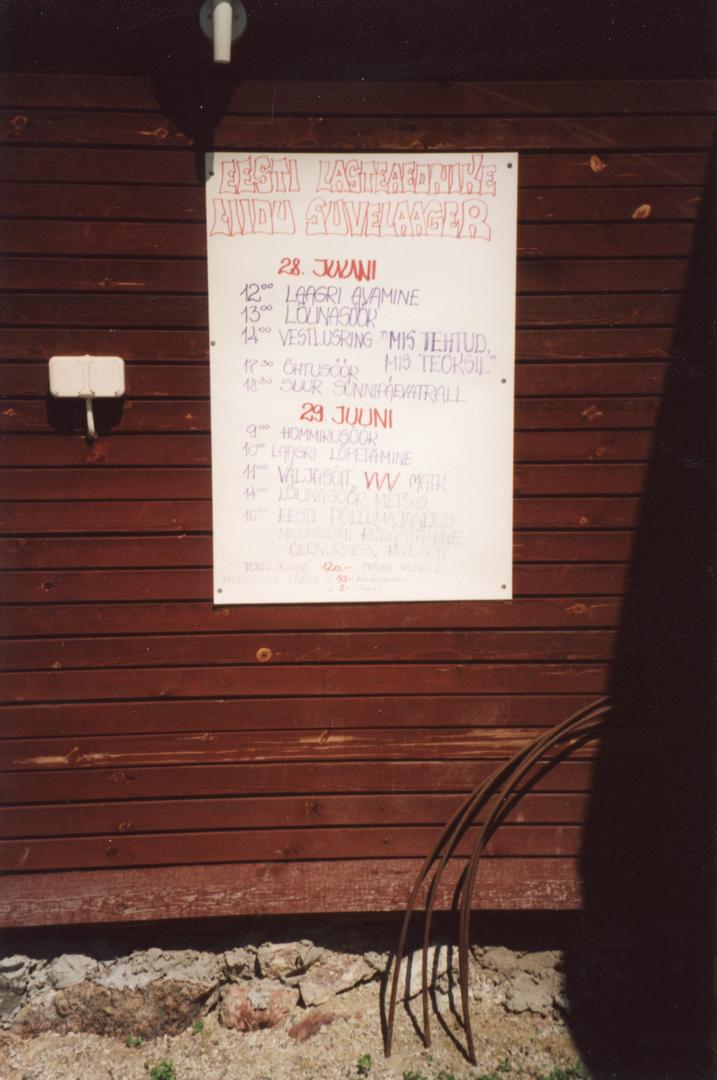 EESTI LASTEAEDNIKE
LIIDU SUVELAAGER
28. JUUNI
12⁰⁰ LAAGRI AVAMINE
13⁰⁰ LÕUNASÖÖK
14⁰⁰ VESTLUSRING "MIS TEHTUD,
MIS TEOKSIL"
17³⁰ ÕHTUSÖÖK
18³⁰ SUUR SÜNNIPÄEVATRALL
29. JUUNI
9⁰⁰ HOMMIKUSÖÖK
10⁰⁰ LAAGRI LÕPETAMINE
11⁰⁰ VÄLJASÕIT, VVV MATK
14⁰⁰ LÕUNASÖÖK METSAS
16⁰⁰ EESTI PÕLLUMAJANDUS-
MUUSEUMI KÜLASTAMINE
ÜLENURMES, KOJUSÕIT
TOIDURAHA 120.-
MUUSEUMI PÄÄSE 10.-
5.-